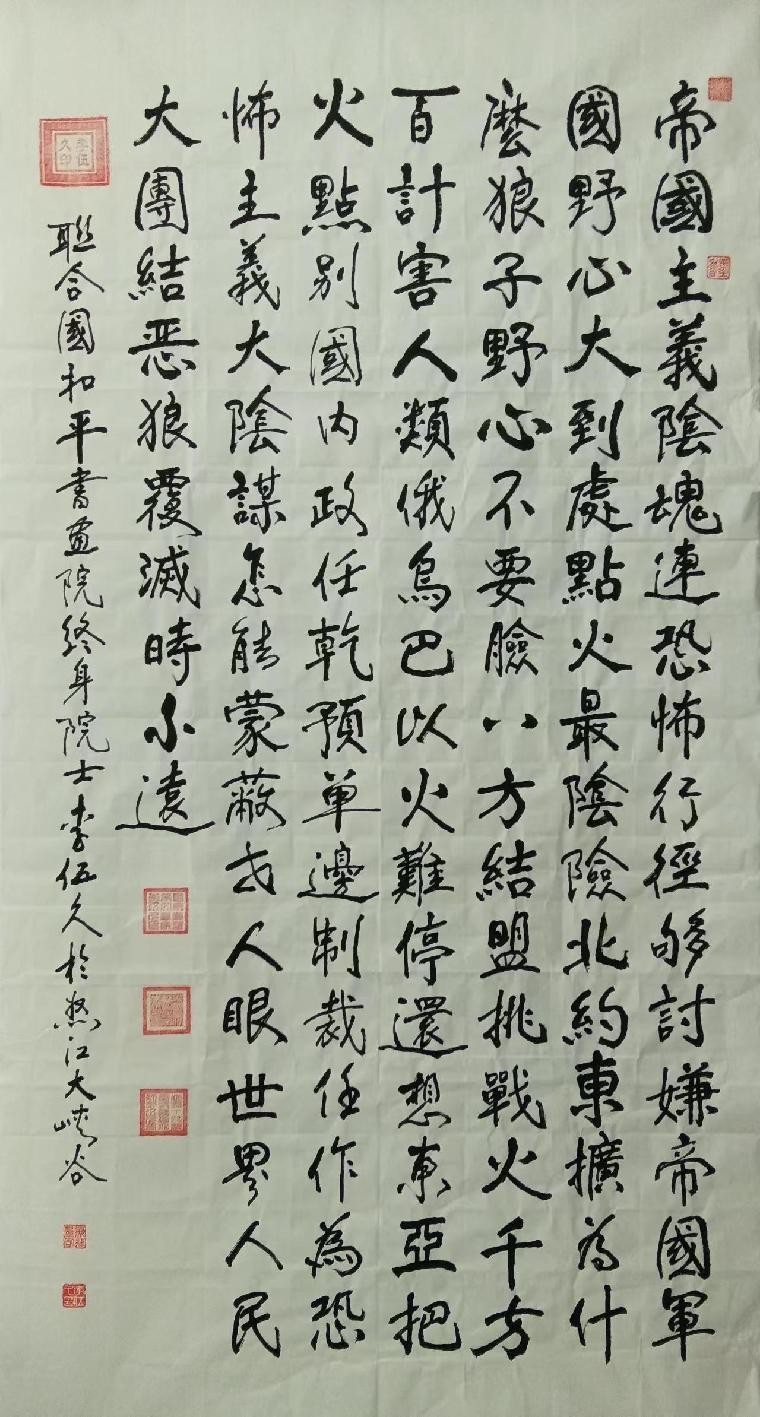 帝國主義陰魂連恐怖行徑够討嫌帝國軍
國野心大到處點火最陰險北約東擴為什
麽狼子野心不要臉八方結盟挑戰火千方
百計害人類俄烏巴以火難停還想東亞把
火點别國内政任乾預單邊制裁任作為恐
怖主義大陰謀怎能蒙蔽世人眼世界人民
大團結恶狼覆滅時不遠
聯合國和平書畫院終身院士李伍久於怒江大峽谷
李伍久印